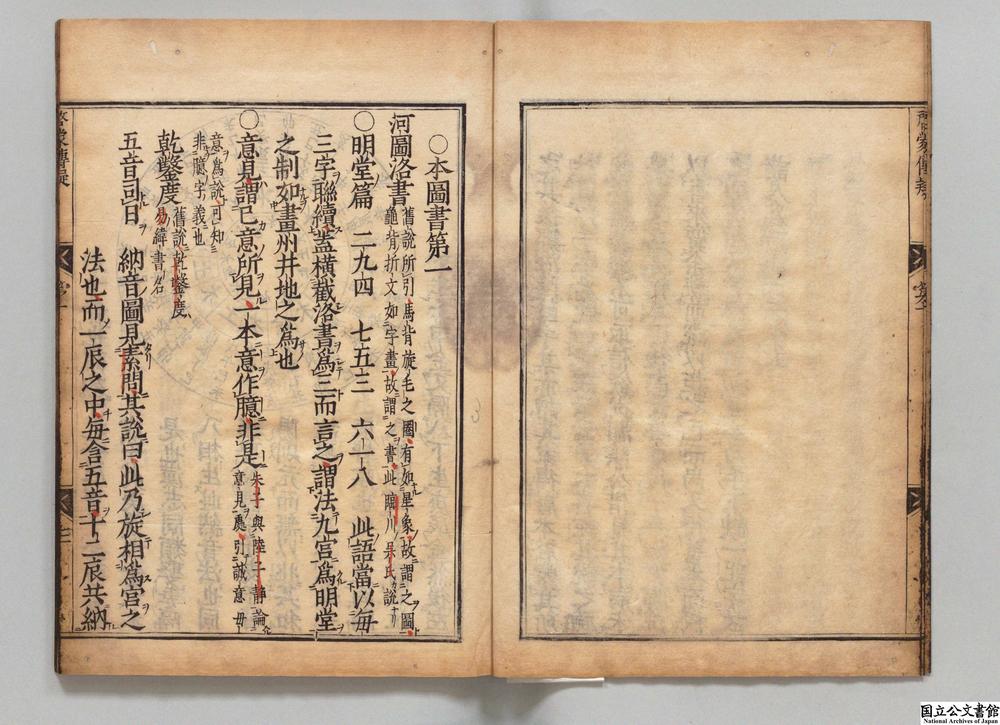 ○本圖書第一
河圖洛書 舊說所引馬背旋毛之圈有如星象故謂之圖
龜背折文如字畫故謂之書此臨川吳氏說
○明堂篇 二九四 七五三 六一八 此語當以每
三字聯續蓋橫截洛書爲三而言之謂法九宮爲明堂
之制如畫州井地之爲也
○意見謂己意所見一本意作臆非是 朱子與陸子靜論
意見處引誠意毋
意爲說可知
非臆字義也
乾鑿度 舊說乾鑿度
易緯書名
五音司日 納音圖見素問其說曰此乃旋相爲宮之
法也而一辰之中每含五音十二辰共納
啓蒙傳疑
第一
国立公文書館
National Archives of Japan